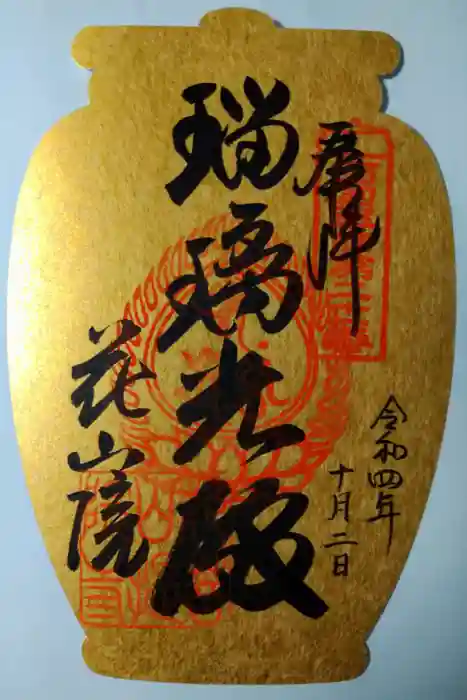 奉拝
令和四年
十月二日
瑠璃光殿
花山院